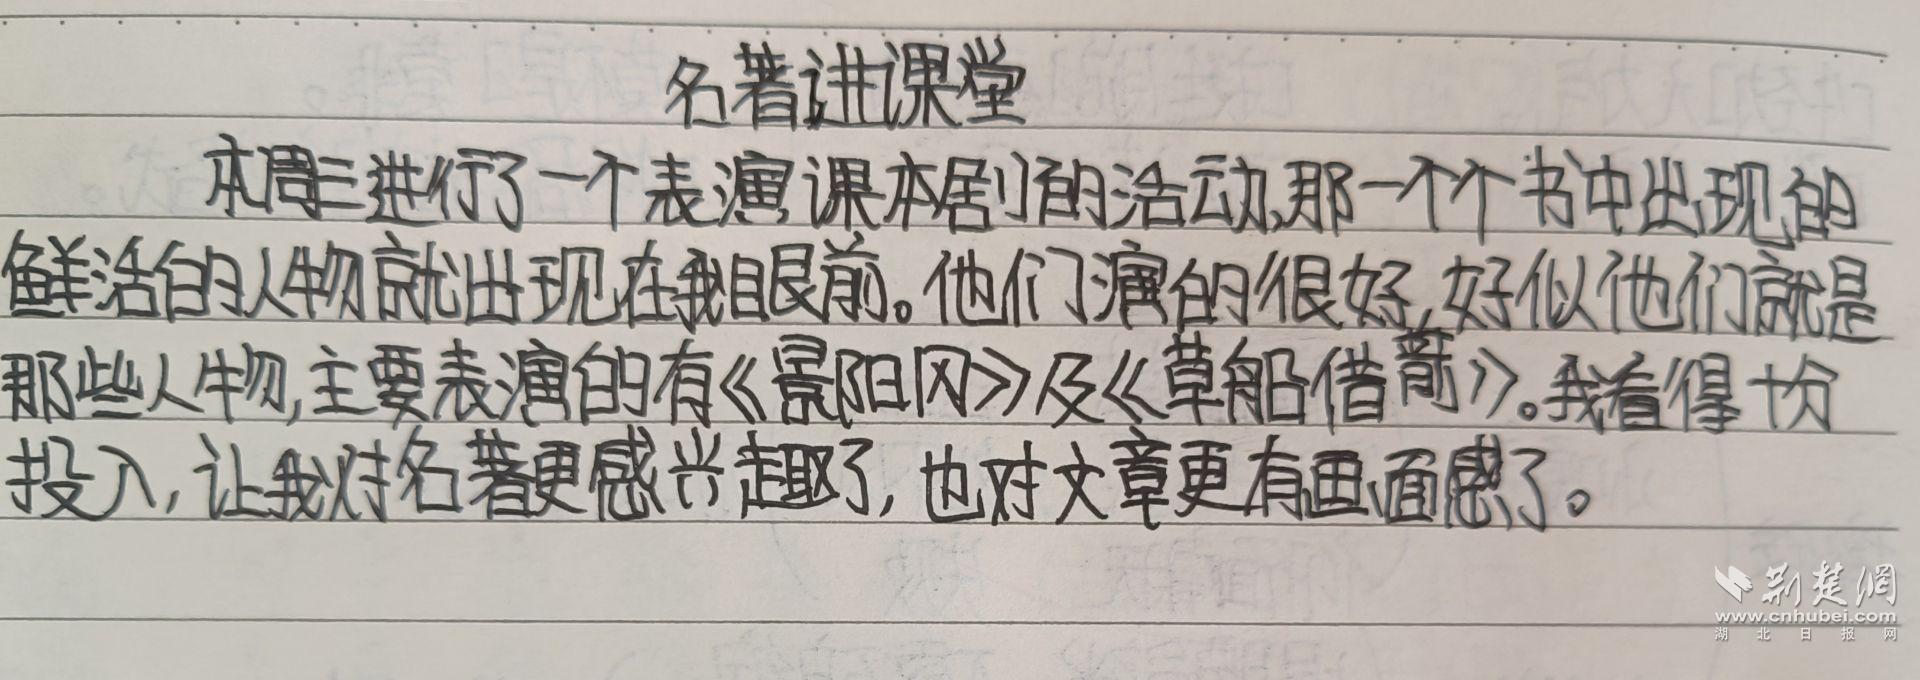 名著进课堂
本周三进行了一个表演课本剧的活动,那一个个书中出现的
鲜活的人物就出现在我眼前。他们演的很好,好似他们就是
那些人物,主要表演的有《景阳冈》及《草船借箭》。我看得十分
投入,让我对名著更感兴趣了,也对文章更有画面感了。
荆楚网
www.cnhubei.com
湖北日报网